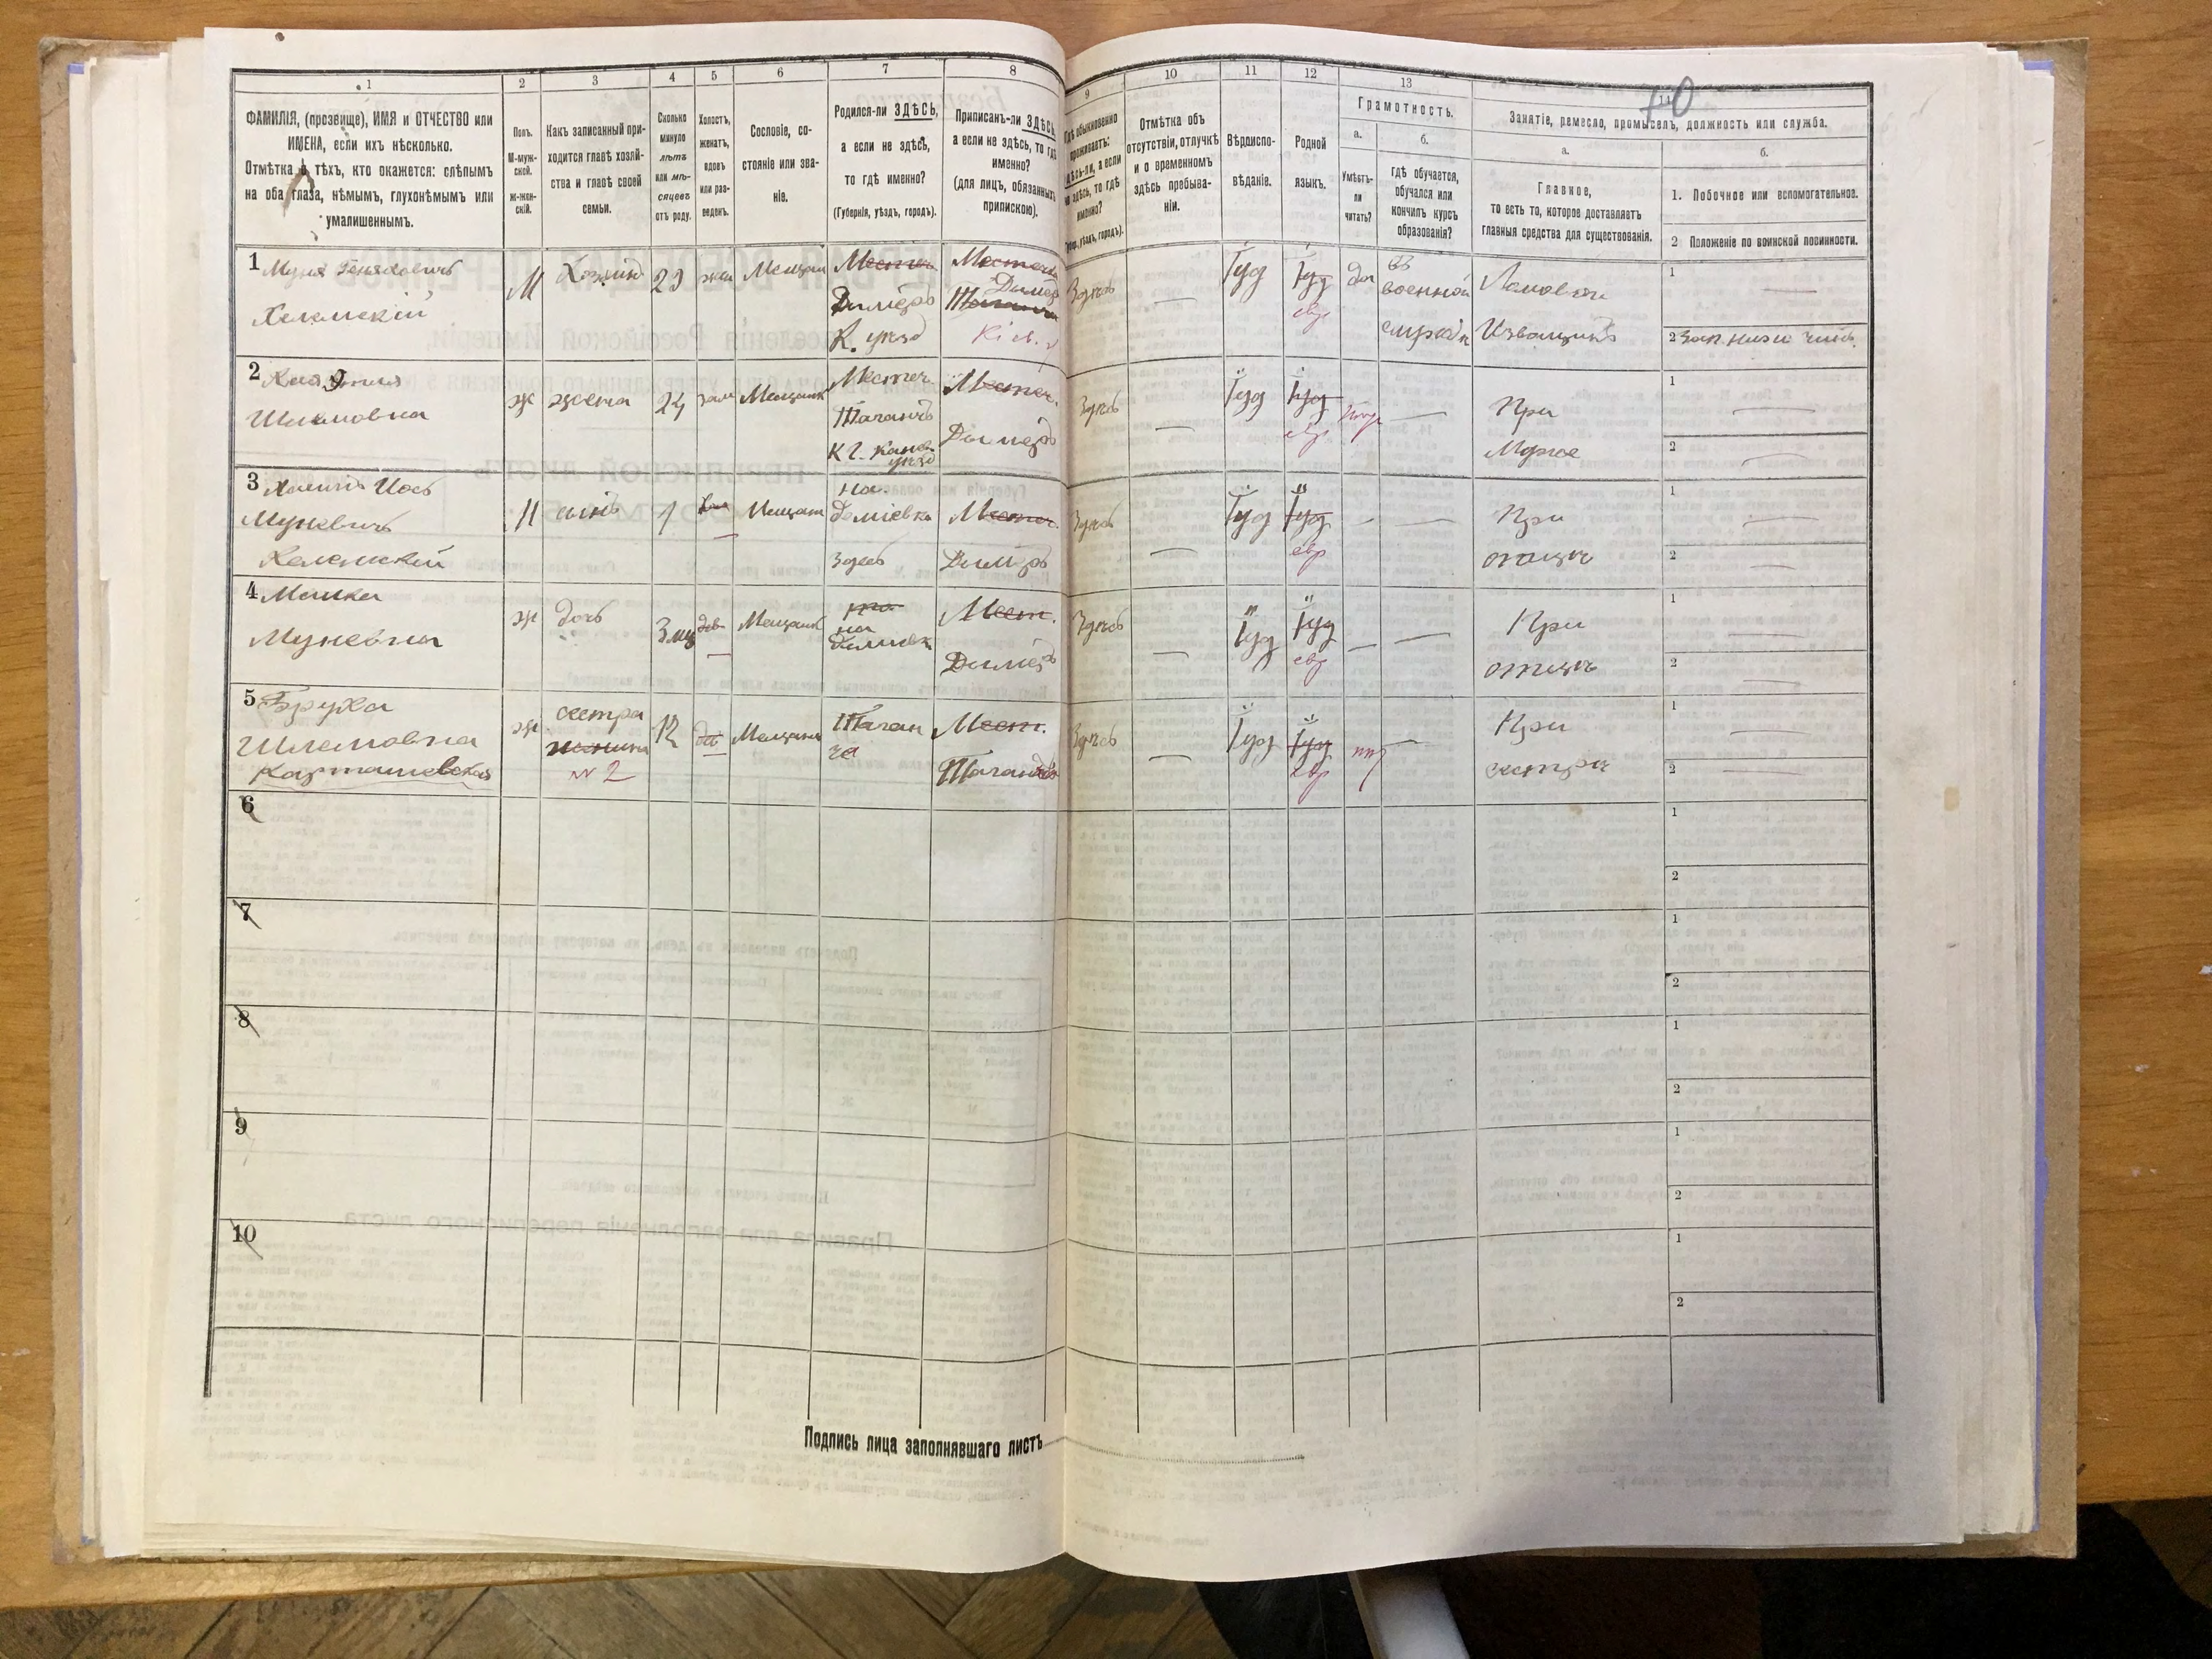 1
2
3
4
5
6
7
8
9
10
11
12
13
ФАМИЛІЯ, (прозвище), ИМЯ и ОТЧЕСТВО или
ИМЕНА, если ихъ нѣсколько.
Отмѣтка о тѣхъ, кто окажется: слѣпымъ
на оба глаза, нѣмымъ, глухонѣмымъ или
умалишеннымъ.
Полъ.
М-муж-
ской.
Ж-жен-
скій.
Какъ записанный при-
ходится главѣ хозяй-
ства и главѣ своей
семьи.
Сколько
минуло
лѣтъ
или мѣ-
сяцевъ
отъ роду.
Холостъ,
женатъ,
вдовъ
или раз-
веденъ.
Сословіе, со-
стояніе или зва-
ніе.
Родился-ли ЗДѢСЬ,
а если не здѣсь,
то гдѣ именно?
(Губернія, уѣздъ, городъ).
Приписанъ-ли ЗДѢСЬ,
а если не здѣсь, то гдѣ
именно?
(для лицъ, обязанныхъ
припискою).
Гдѣ обыкновенно
проживаетъ:
здѣсь-ли, а если
не здѣсь, то гдѣ
именно?
(Губер., уѣздъ, городъ).
Отмѣтка объ
отсутствіи, отлучкѣ
и о временномъ
здѣсь пребыва-
ніи.
Вѣроиспо-
вѣданіе.
Родной
языкъ.
Грамотность.
а.
Умѣетъ-
ли
читать?
б.
гдѣ обучается,
обучался или
кончилъ курсъ
образованія?
Занятіе, ремесло, промыселъ, должность или служба.
а.
Главное,
то есть то, которое доставляетъ
главныя средства для существованія.
б.
1. Побочное или вспомогательное.
2 Положеніе по воинской повинности.
1
Хелемскій
М
Хозяинъ
29
жен
Мещан
Дымеръ
К. уѣзд
Дымер
Кіев.
Здѣсь
Іуд
Іуд
евр
да
въ
военной
Извощикъ
1
2 Зап. низш. чинъ.
2
Шлемовна
ж
жена
24
зам
Мещанк
Местеч.
Таганчѣ
К. г. Канев.
уѣзд
Местеч.
Дымеръ
Здѣсь
Іуд
Іуд
евр
При
Мужѣ
1
2
3
Муневичъ
Хелемскій
М
сынъ
1
Мещан
на
Деміевкѣ
Здѣсь
Местеч.
Дымеръ
Здѣсь
Іуд
Іуд
евр
При
отцѣ
1
2
4 Малка
Муневна
ж
дочь
3 мц
дѣв
Мещанк
на
Деміевк
Мест.
Дымеръ
Здѣсь
Іуд
Іуд
евр
При
отцѣ
1
2
5 Бруха
Шлемовна
Карташевская
ж
сестра
жены
№ 2
12
Мещанк
Таган
ча
Мест.
Таганчѣ
Здѣсь
Іуд
Іуд
евр
нѣт
При
сестрѣ
1
2
6
1
2
7
1
2
8
1
2
9
1
2
10
1
2
Подпись лица заполнявшаго листъ